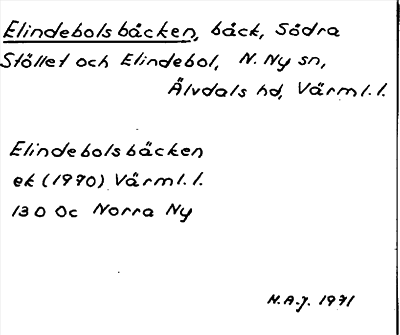 Elindebolsbäcken, bäck, Södra
Stöllet och Elindebol, N. Ny sn,
Älvdals hd, Värml. l.
Elindebolsbäcken
ek (1970) Värml. l.
13 D 0c Norra Ny
N.A.J. 1971